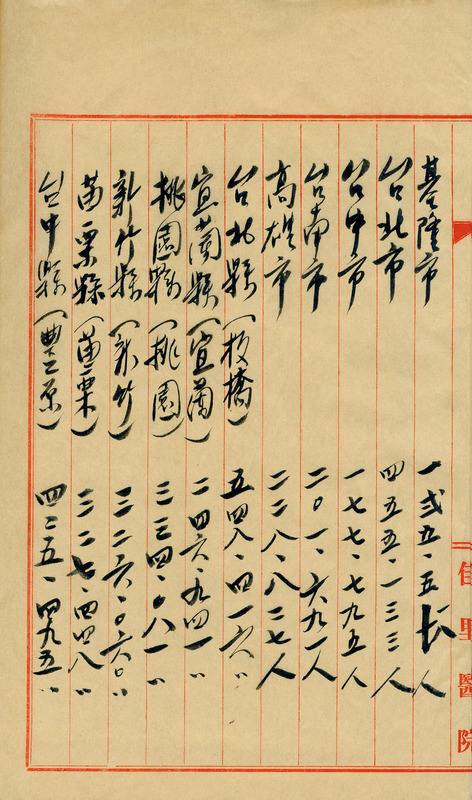 佳里醫院
基隆市 一弐五・五人
台北市 四五五・一三三人
台中市 一七七・七九五人
台南市 二〇一・六九一人
高雄市 二二八・八二七人
台北縣(板橋) 五四八・四一六〃
宜蘭縣(宜蘭) 二四六・九四一〃
桃園縣(桃園) 三三四・〇八一〃
新竹縣(新竹) 三二六・〇六〇〃
苗栗縣(苗栗) 三二七・四四八〃
台中縣(豐原) 四二五・四九五〃